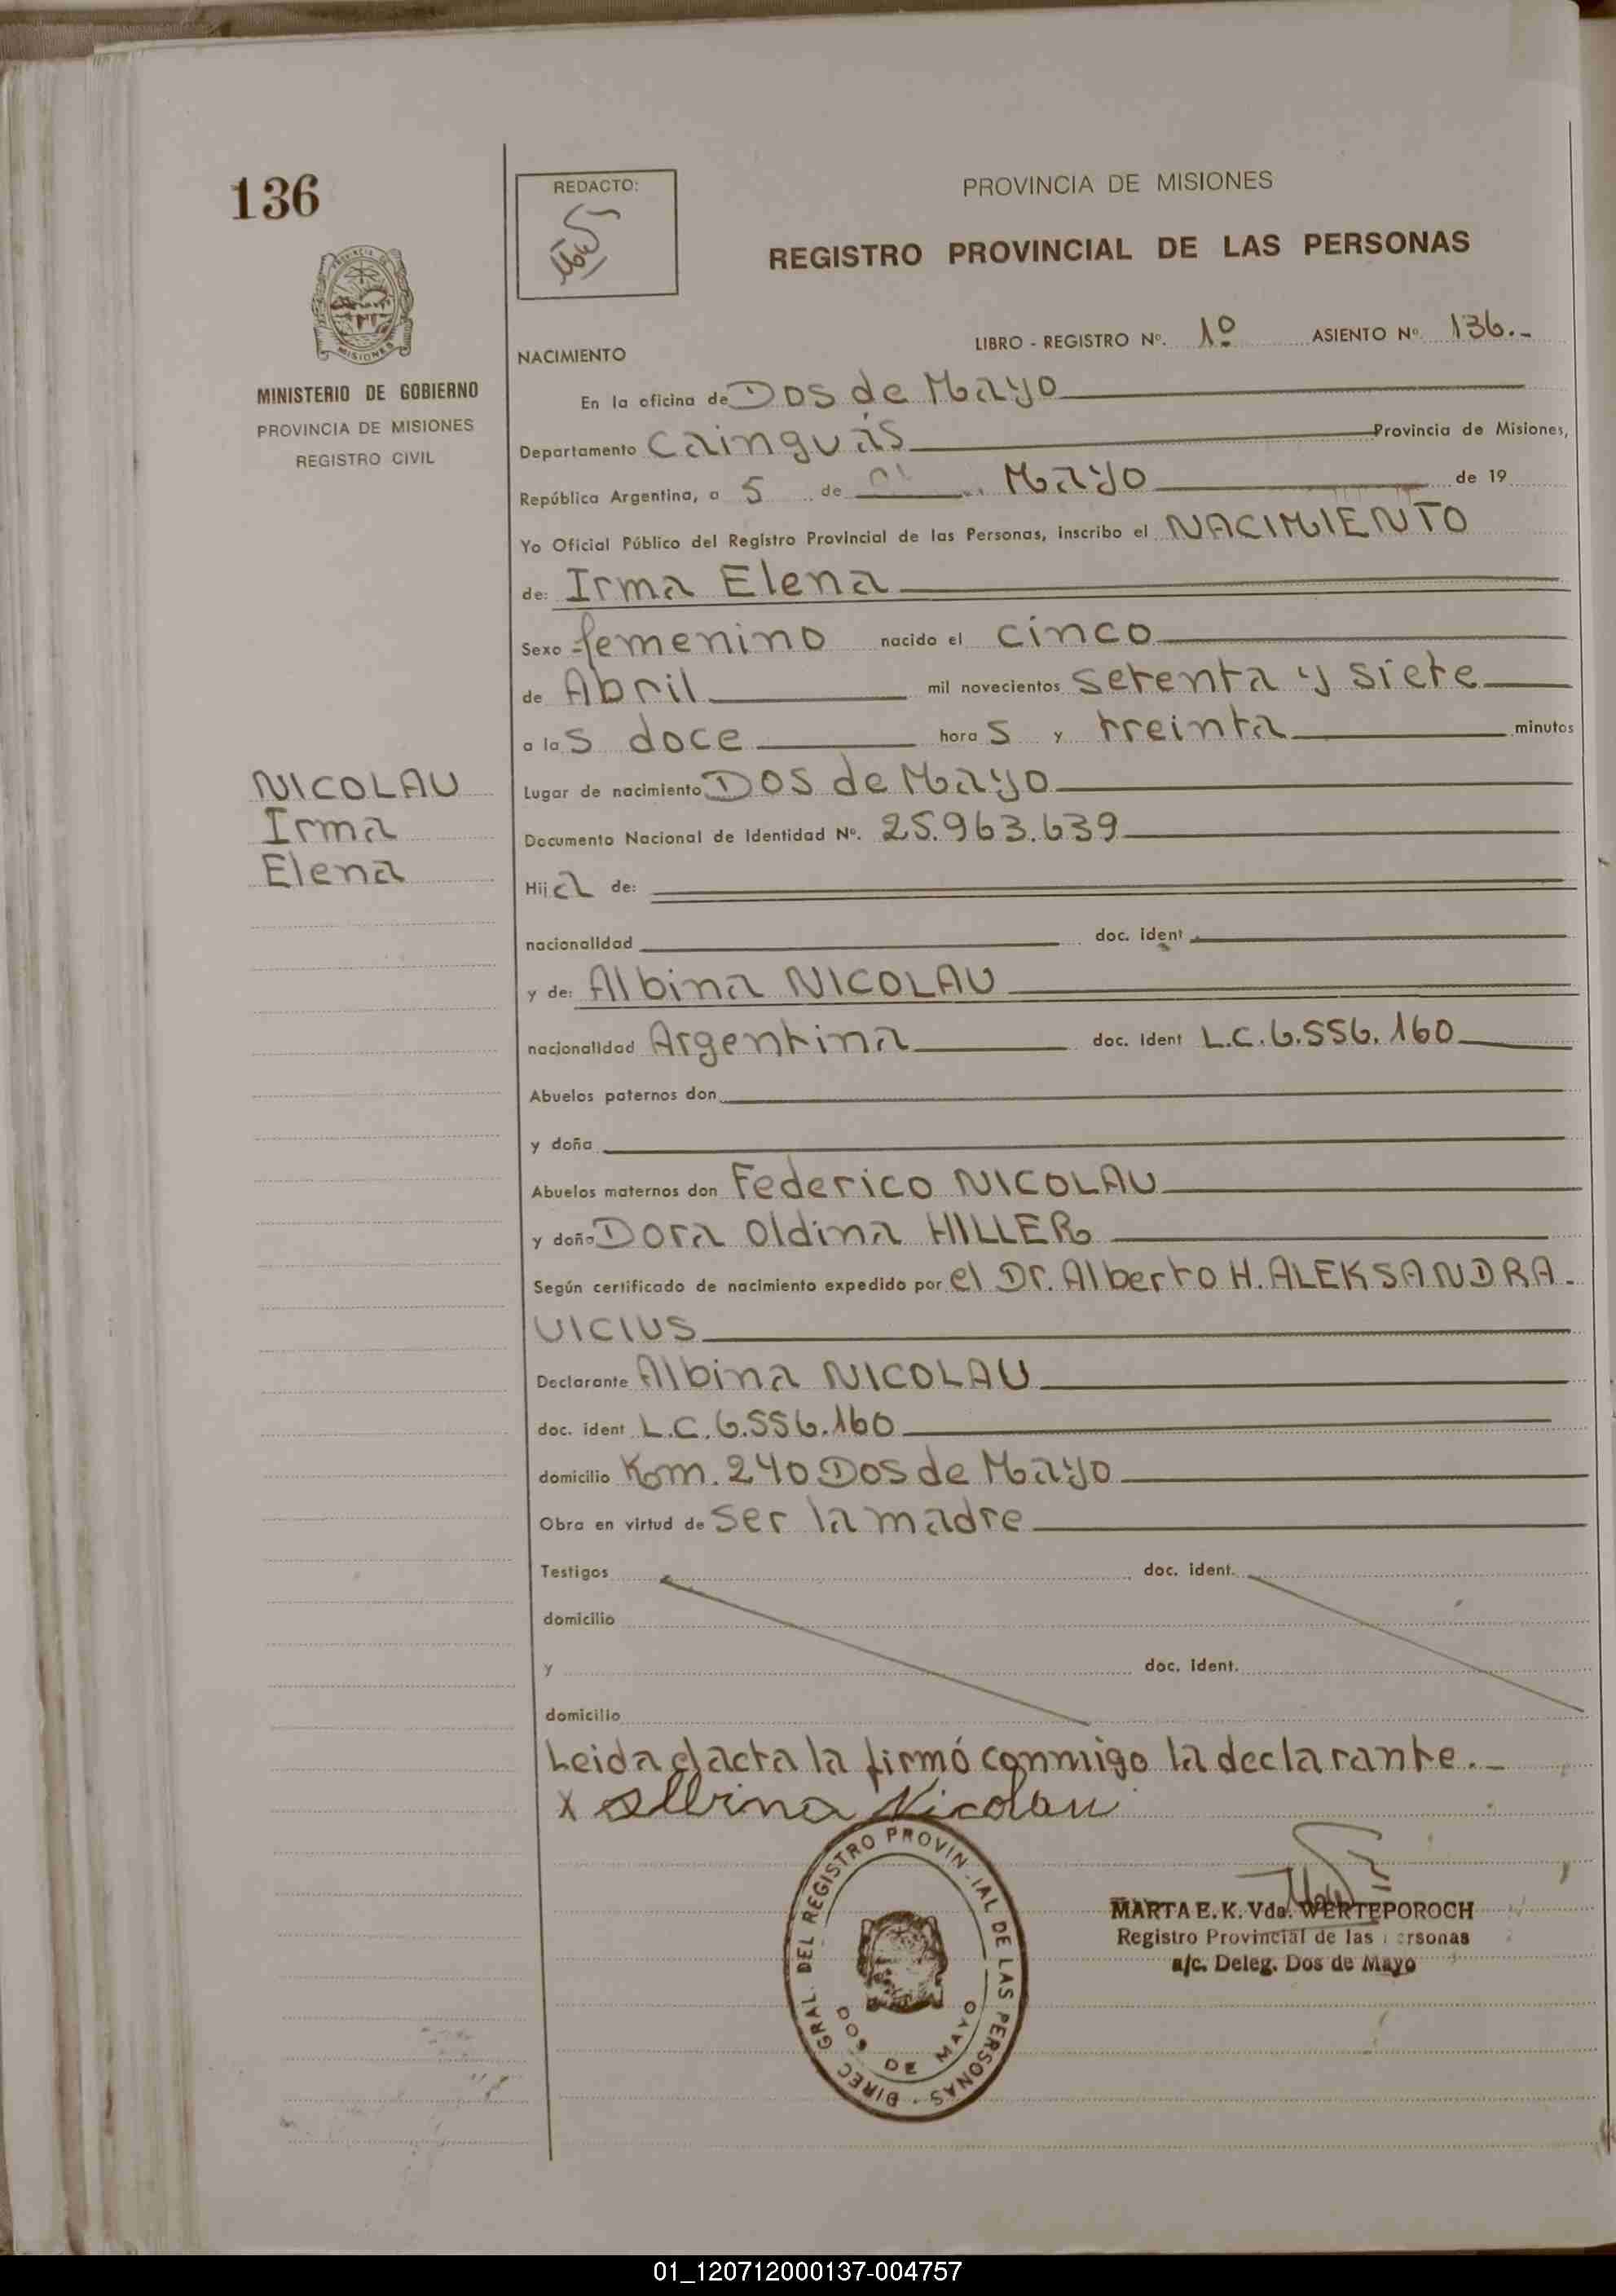 136
REDACTO:
PROVINCIA DE MISIONES
REGISTRO PROVINCIAL DE LAS PERSONAS
MISIONES
MINISTERIO DE GOBIERNO
PROVINCIA DE MISIONES
REGISTRO CIVIL
LIBRO - REGISTRO Nº. 1º ASIENTO Nº 136.-
NACIMIENTO
En la oficina de Dos de Mayo
Departamento Cainguás Provincia de Misiones,
República Argentina, a 5 de Mayo de 19
Yo Oficial Público del Registro Provincial de las Personas, inscribo el NACIMIENTO
de: Irma Elena
Sexo femenino nacido el cinco
de Abril mil novecientos setenta y siete
a las doce horas y treinta minutos
Lugar de nacimiento Dos de Mayo
Documento Nacional de Identidad Nº. 25.963.639
Hija de:
nacionalidad doc. ident
y de: Albina NICOLAU
nacionalidad Argentina doc. ident L.C.6.556.160
Abuelos paternos don
y doña
Abuelos maternos don Federico NICOLAU
y doña Dora Oldina HILLER
Según certificado de nacimiento expedido por el Dr. Alberto H. ALEKSANDRA-
VICIUS
Declarante Albina NICOLAU
doc. ident L.C.6.556.160
domicilio Km. 240 Dos de Mayo
Obra en virtud de ser la madre
Testigos doc. ident.
domicilio
y doc. ident.
domicilio
Leida el acta la firmó conmigo la declarante.-
x Albina Nicolau
NICOLAU
Irma
Elena
DIREC GRAL. DEL REGISTRO PROVIN IAL DE LAS PERSONAS
DOS DE MAYO
MARTA E. K. Vda. WERTEPOROCH
Registro Provincial de las ersonas
a/c. Deleg. Dos de Mayo
01_120712000137-004757